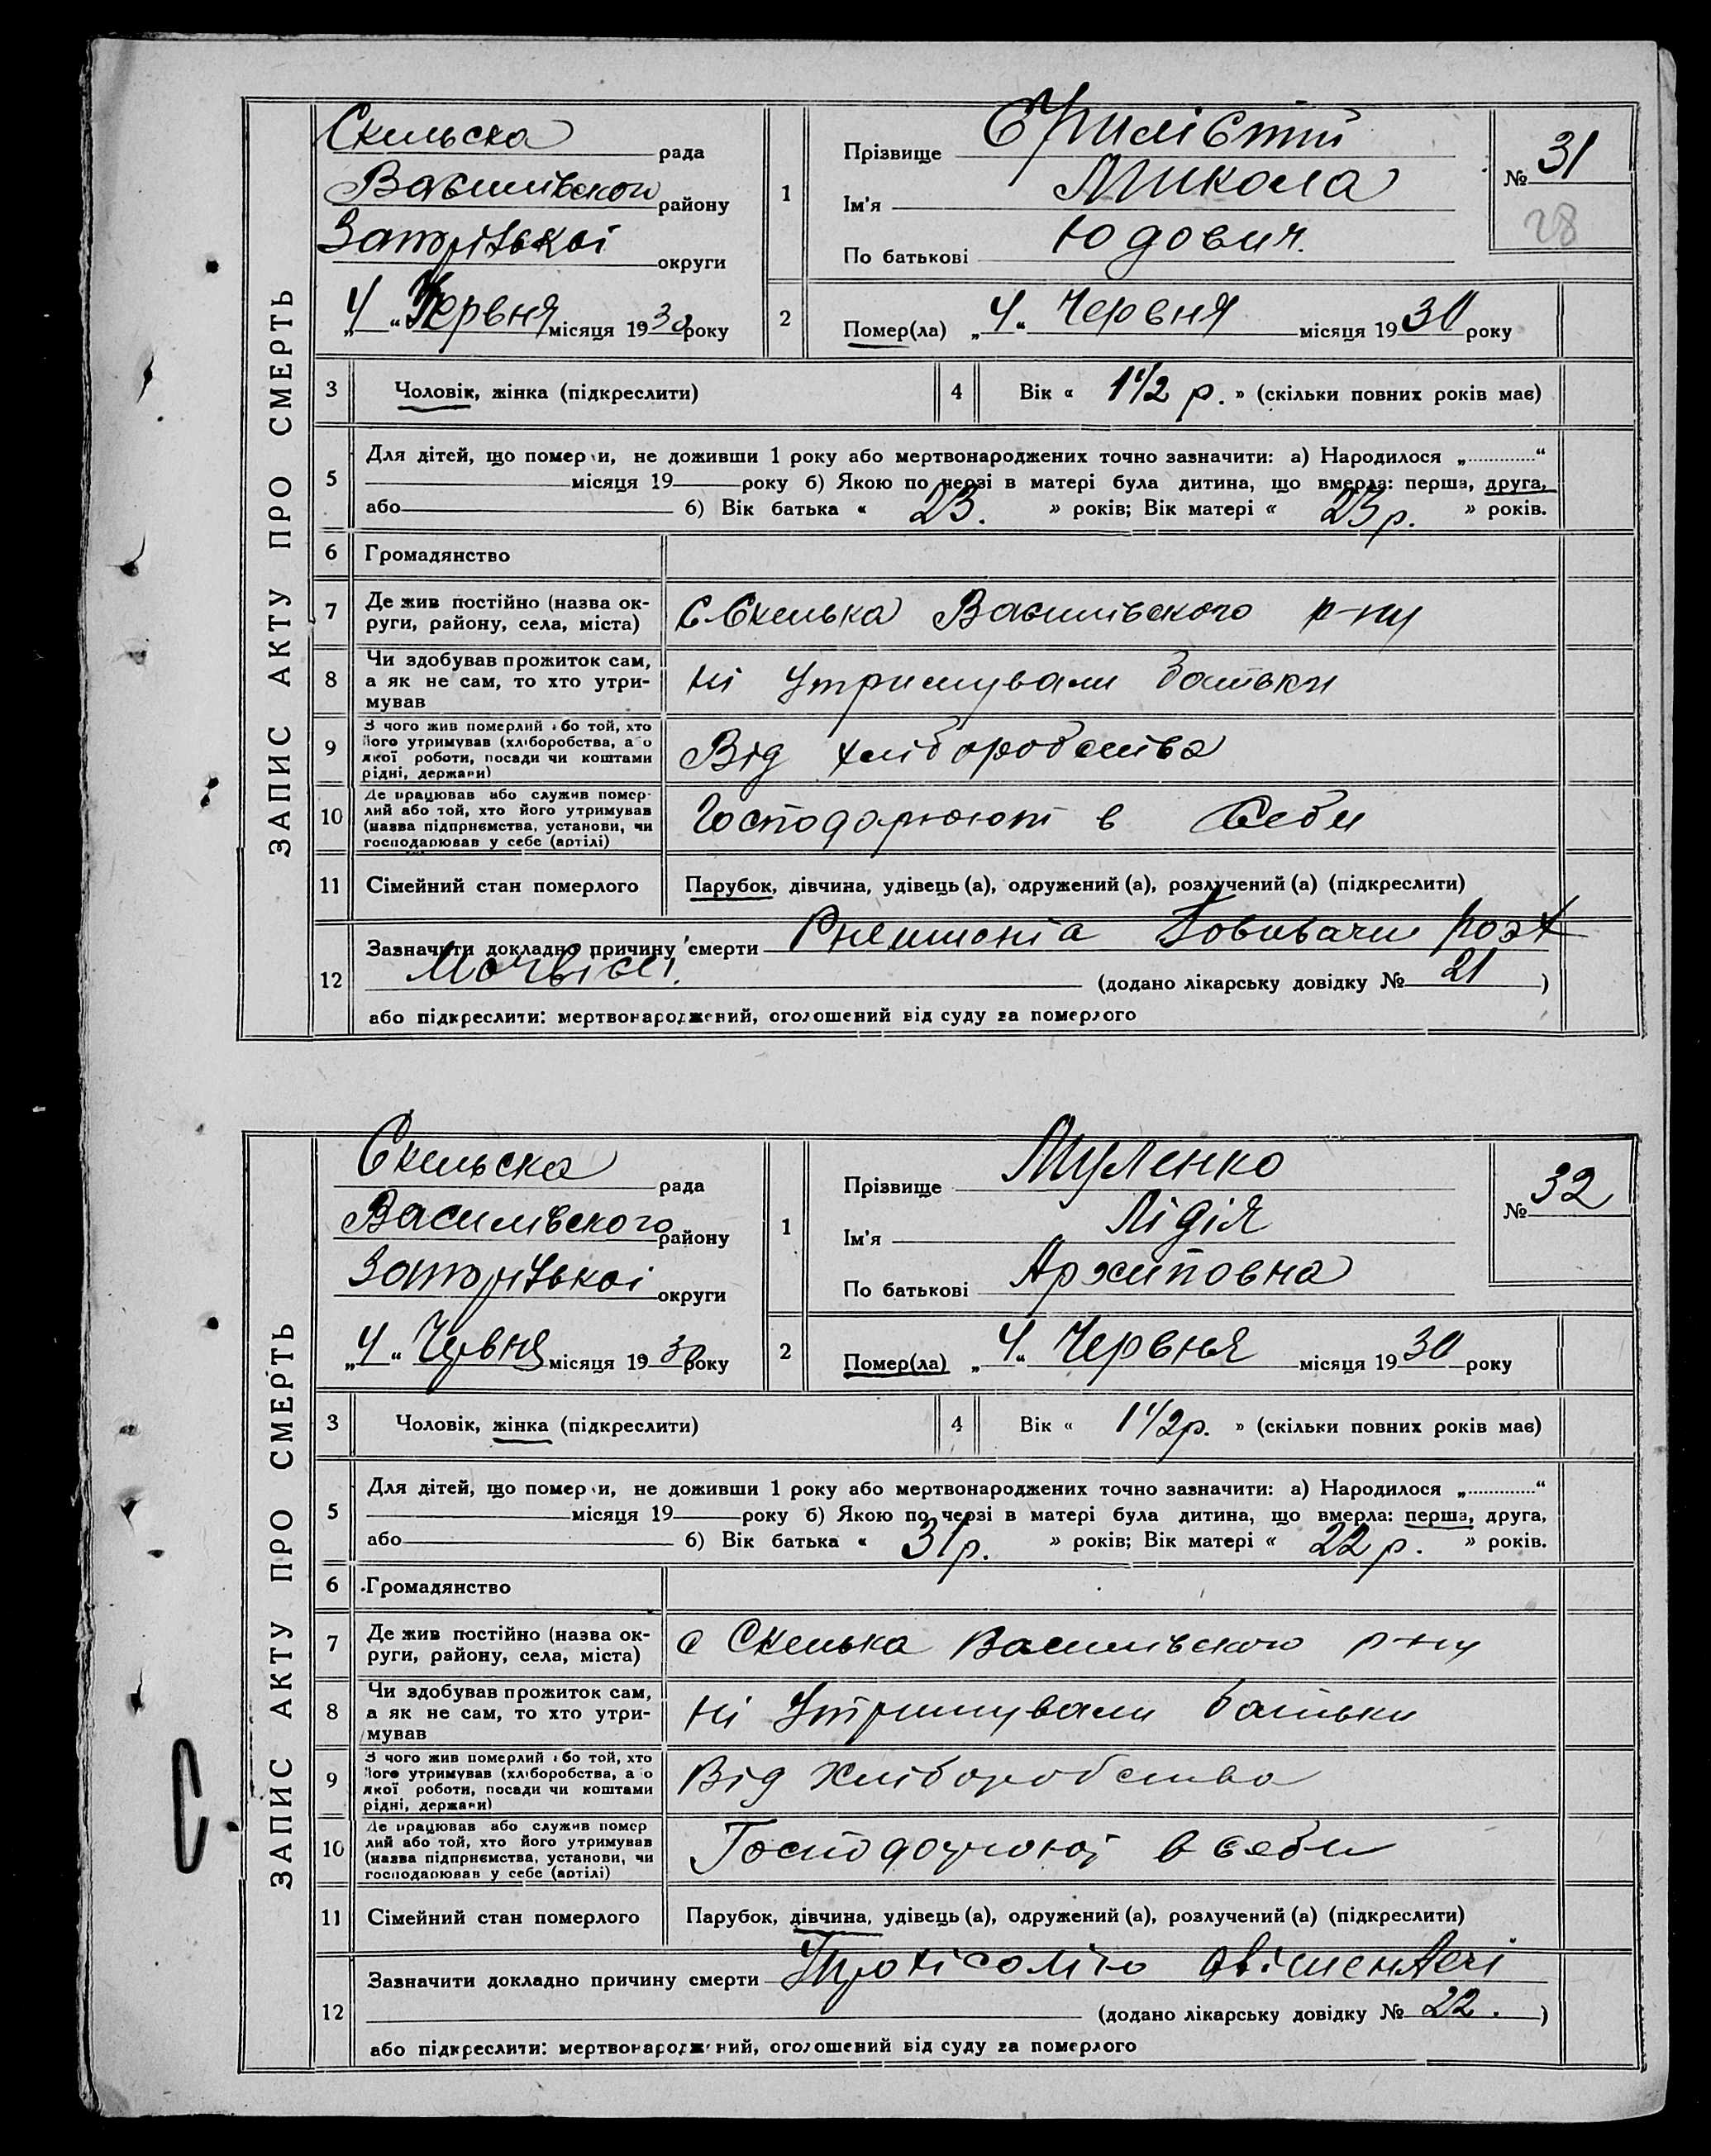 ЗАПИС АКТУ ПРО СМЕРТЬ
Скельска рада
Василівського району
Запорізької округи
„4“ Червня місяця 1930 року
1
Прізвище
Ім'я Микола
По батькові Юдович.
№ 31
28
2
Помер(ла) „4“ Червня місяця 1930 року
3 Чоловік, жінка (підкреслити)
4 Вік « 1 1/2 р. » (скільки повних років має)
5
Для дітей, що померли, не доживши 1 року або мертвонароджених точно зазначити: а) Народилося „ “
місяця 19 року б) Якою по черзі в матері була дитина, що вмерла: перша, друга,
або б) Вік батька « 23. » років; Вік матері « 23 р. » років.
6 Громадянство
7 Де жив постійно (назва ок-
руги, району, села, міста)
С. Скелька Василівского р-ну
8 Чи здобував прожиток сам,
а як не сам, то хто утри-
мував
Ні Утримували батьки
9 З чого жив померлий або той, хто
його утримував (хліборобства, або
якої роботи, посади чи коштами
рідні, держави)
Від хліборобства
10 Де працював або служив помер-
лий або той, хто його утримував
(назва підприємства, установи, чи
господарював у себе (артілі)
Господорюют в себи
11 Сімейний стан померлого
Парубок, дівчина, удівець (а), одружений (а), розлучений (а) (підкреслити)
12
Зазначити докладно причину смерти Рнеимоніа
(додано лікарську довідку № 21 )
або підкреслити: мертвонароджений, оголошений від суду за померлого
ЗАПИС АКТУ ПРО СМЕРТЬ
Скельска рада
Василівского району
Запорізької округи
„4“ Червня місяця 1930 року
1
Прізвище Муленко
Ім'я Лідія
По батькові Архиповна
№ 32
2
Помер(ла) „4“ Червня місяця 1930 року
3 Чоловік, жінка (підкреслити)
4 Вік « 1 1/2 р. » (скільки повних років має)
5
Для дітей, що померли, не доживши 1 року або мертвонароджених точно зазначити: а) Народилося „ “
місяця 19 року б) Якою по черзі в матері була дитина, що вмерла: перша, друга,
або б) Вік батька « 31 р. » років; Вік матері « 22 р. » років.
6 Громадянство
7 Де жив постійно (назва ок-
руги, району, села, міста)
с Скелька Василівского р-ну
8 Чи здобував прожиток сам,
а як не сам, то хто утри-
мував
Ні Утримували батьки
9 З чого жив померлий або той, хто
його утримував (хліборобства, або
якої роботи, посади чи коштами
рідні, держави)
Від хліборобства
10 Де працював або служив помер
лий або той, хто його утримував
(назва підприємства, установи, чи
господарював у себе (артілі)
Господорюют в себи
11 Сімейний стан померлого
Парубок, дівчина, удівець (а), одружений (а), розлучений (а) (підкреслити)
12
Зазначити докладно причину смерти
(додано лікарську довідку № 22. )
або підкреслити: мертвонароджений, оголошений від суду за померлого